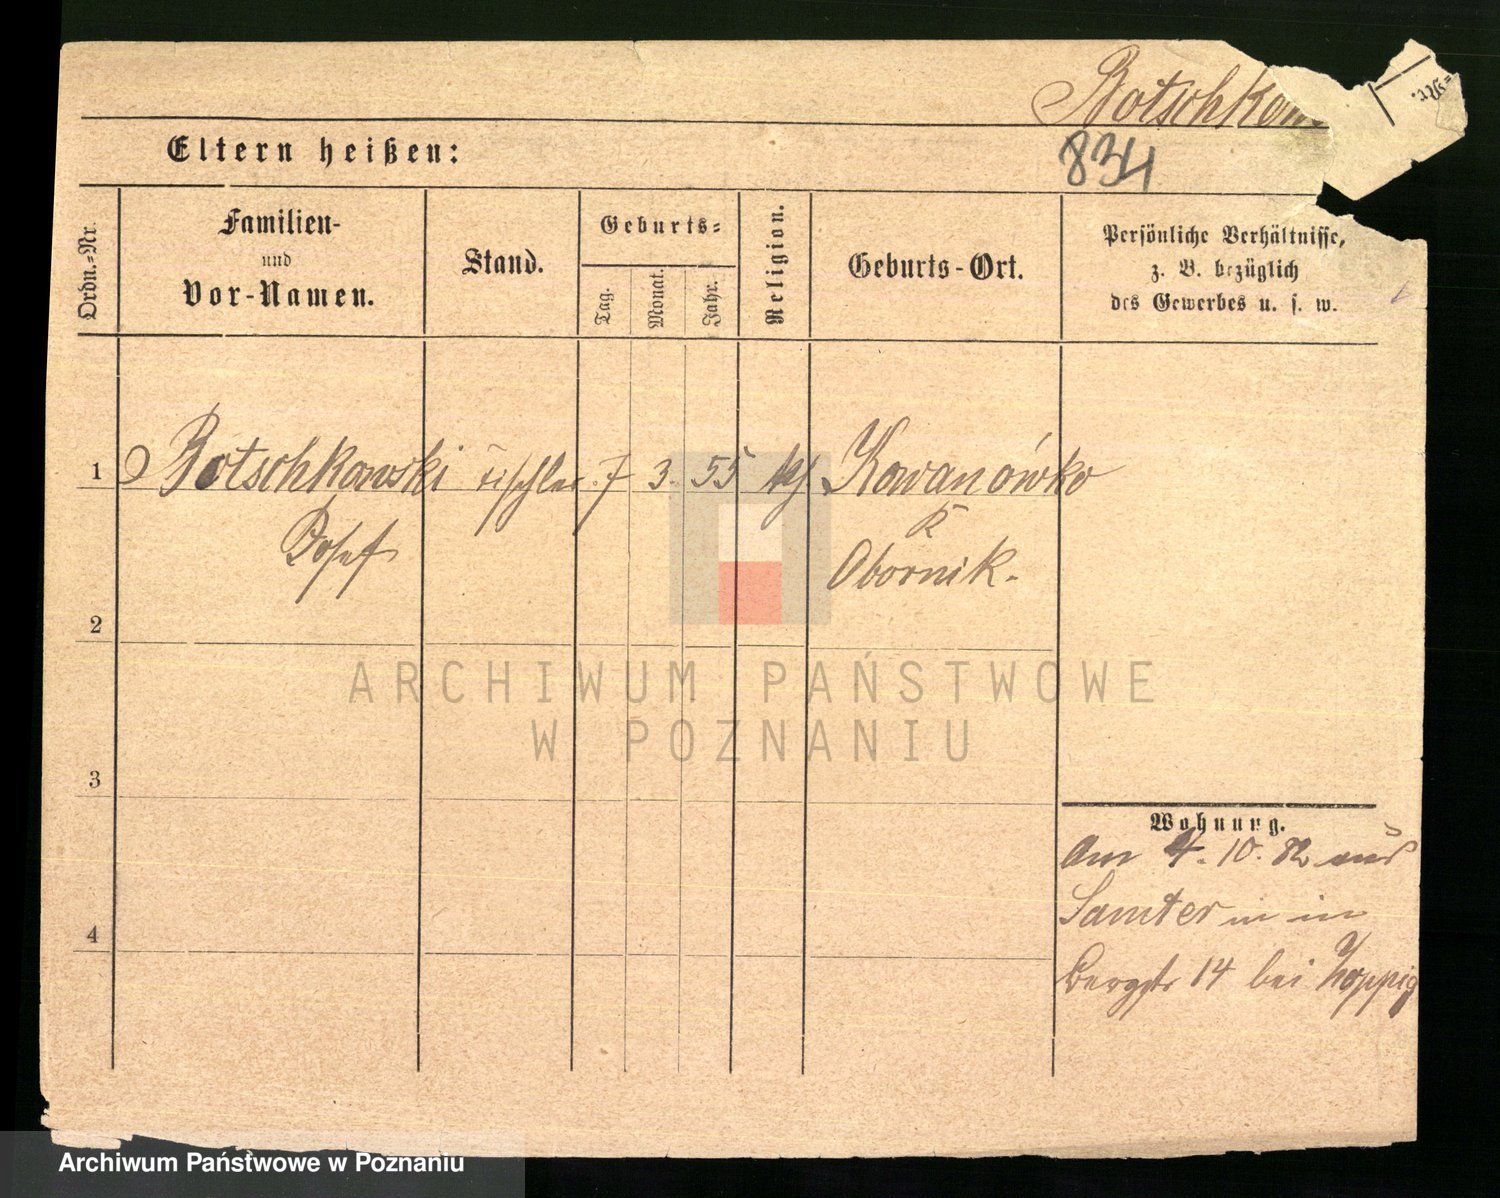 Botschkow
Nr.
834
Eltern heißen:
Ordn.-Nr.
Familien-
und
Vor-Namen.
Stand.
Geburts-
Tag.
Monat.
Jahr.
Religion.
Geburts-Ort.
Persönliche Verhältnisse,
z. B. bezüglich
des Gewerbes u. s. w.
1 Botschkowski Tischler 7 3. 55 kth Kowanówko
Josef
K
Obornik.
2
3
4
Wohnung.
Am 4. 10. 82 aus
Samter in in
Bergstr 14 bei
ARCHIWUM PAŃSTWOWE
W POZNANIU
Archiwum Państwowe w Poznaniu